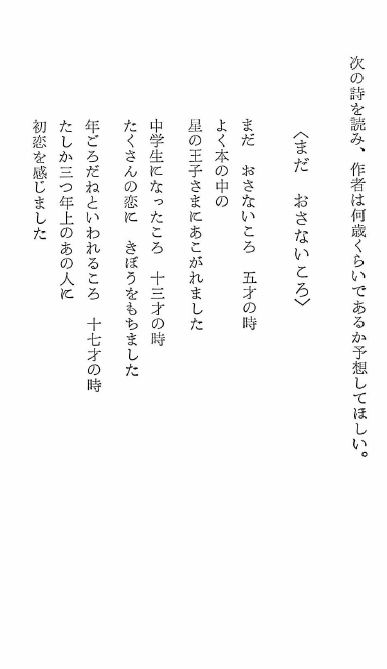 次の詩を読み、作者は何歳くらいであるか予想してほしい。
〈まだ　おさないころ〉
まだ　おさないころ　五才の時
よく本の中の
星の王子さまにあこがれました
中学生になったころ　十三才の時
たくさんの恋に　きぼうをもちました
年ごろだねといわれるころ　十七才の時
たしか三つ年上のあの人に
初恋を感じました